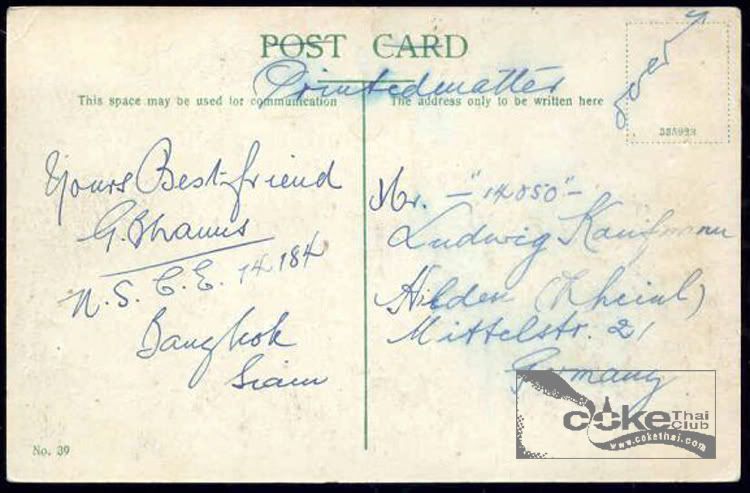 POST CARD
Printedmatter
over
This space may be used for communication
The address only to be written here
335923
Yours Best-friend
G.
N. S. C. E. 14.184
Bangkok
Siam
Mr. – "14050" –
Ludwig Kaufmann
Hilden (Rheinl)
Mittelstr. 21
Germany
No. 39
coke Thai Club
www.cokethai.com